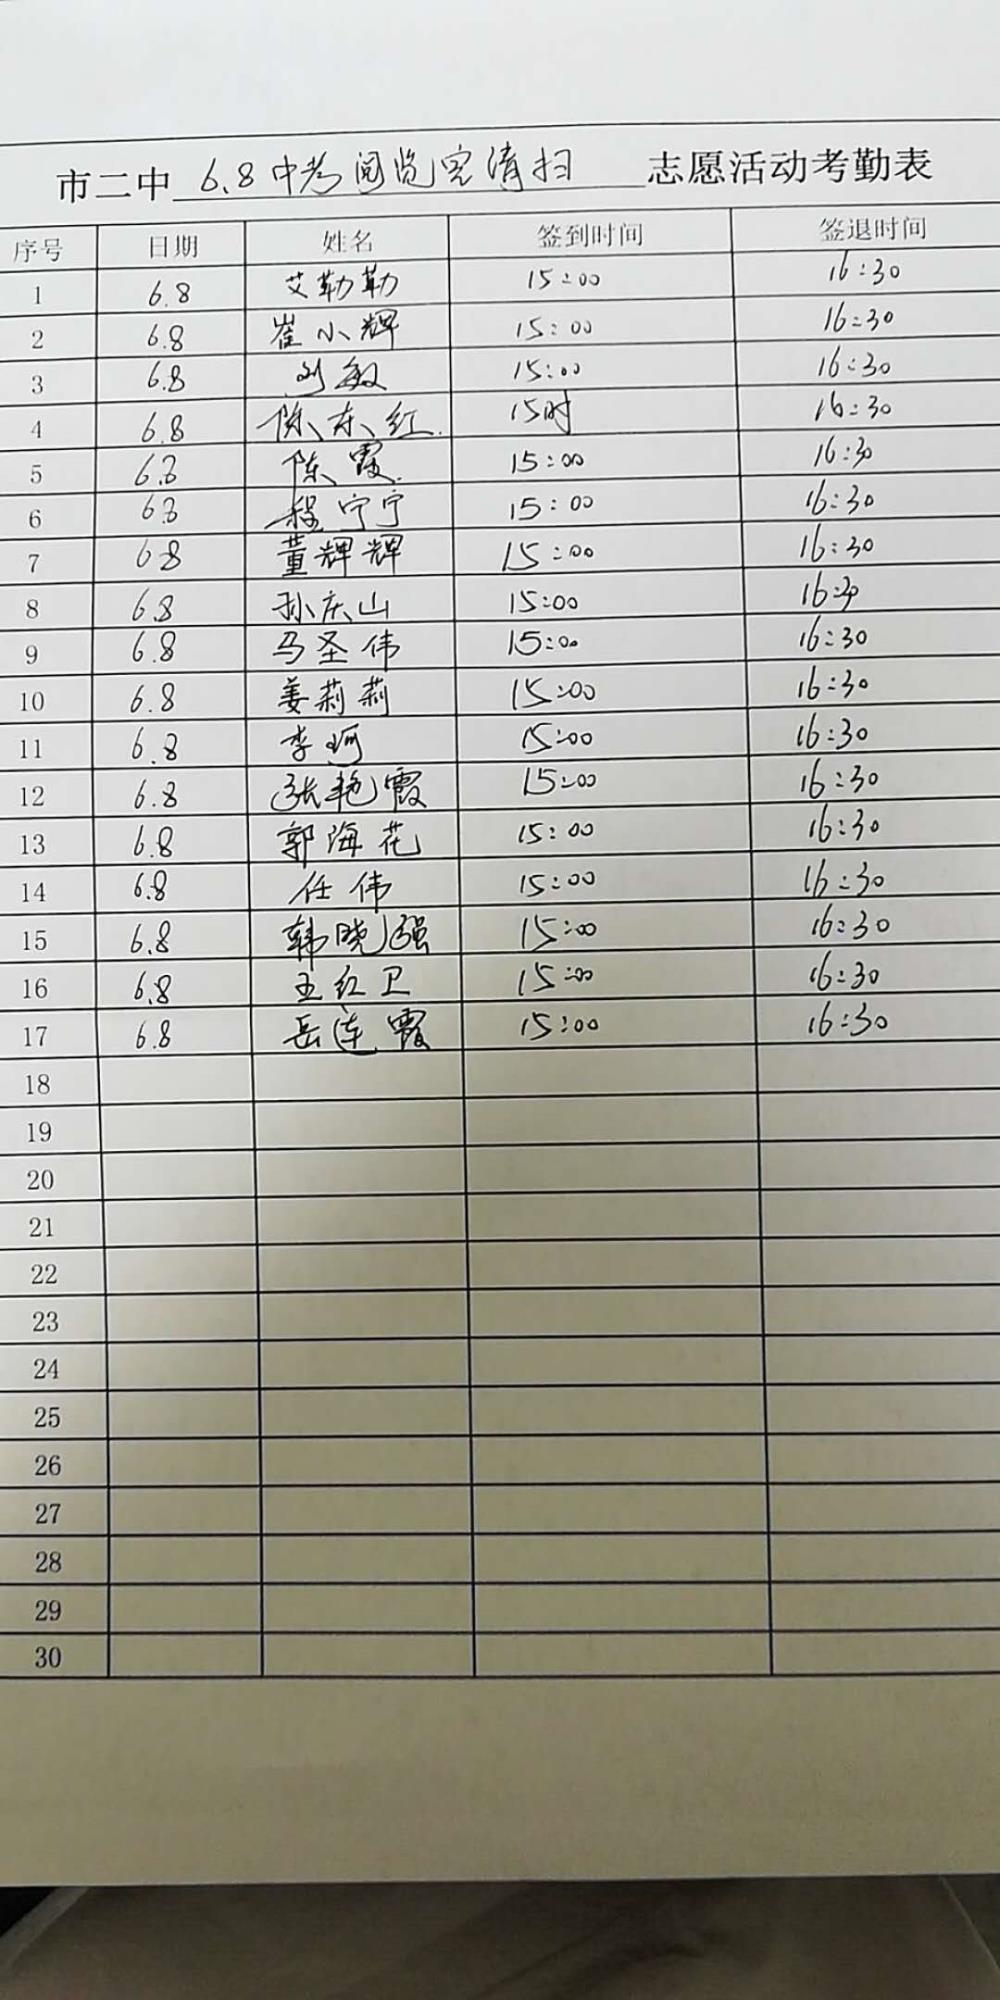 市二中 6.8中考阅览室清扫 志愿活动考勤表
序号 日期 姓名 签到时间 签退时间
1 6.8 艾勤勤 15:00 16:30
2 6.8 崔小辉 15:00 16:30
3 6.8 刘敏 15:00 16:30
4 6.8 陈东红 15时 16:30
5 6.8 陈霞 15:00 16:30
6 6.8 程宁宁 15:00 16:30
7 6.8 董辉辉 15:00 16:30
8 6.8 孙庆山 15:00 16:30
9 6.8 马圣伟 15:00 16:30
10 6.8 姜莉莉 15:00 16:30
11 6.8 李珂 15:00 16:30
12 6.8 张艳霞 15:00 16:30
13 6.8 郭海花 15:00 16:30
14 6.8 任伟 15:00 16:30
15 6.8 韩晓强 15:00 16:30
16 6.8 王红卫 15:00 16:30
17 6.8 岳连霞 15:00 16:30
18
19
20
21
22
23
24
25
26
27
28
29
30